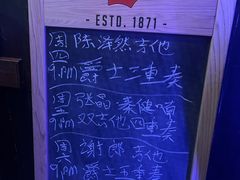 - ESTD. 1871 -
周四 陈泽然吉他
9PM 爵士三重奏
周五 张
9PM 双吉他四重奏
周六 谢 吉他
9PM 爵士五重奏